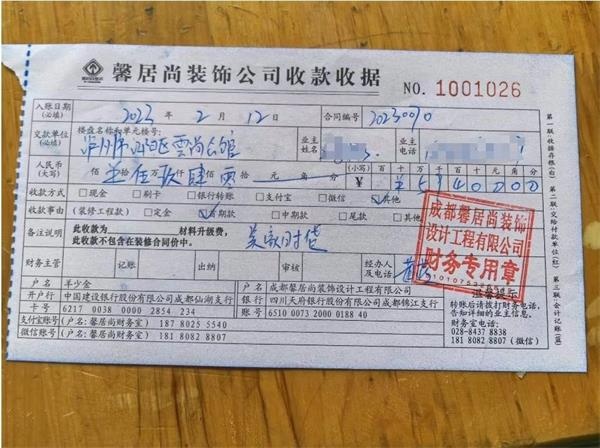 馨居尚装饰公司收款收据 NO. 1001026
入账日期(必填) 2023 年 2 月 12 日 合同编号 20230070
交款单位(必填) 楼盘名称和单元楼号: 泸州市 区云尚公馆 业主姓名 业主电话
人民币(大写) 佰 拾 万 伍 仟 玖 佰 肆 拾 零 元 角 分 (小写) 百 十 万 千 百 十 元 角 分 5940000
收款方式 □现金 □刷卡 □银行转账 □支付宝 □微信 ☑其他
收款事由 (装修工程款) □定金 ☑首期款 □中期款 □尾款 □其他
备注说明 此收款为 材料升级费,
此收款不包含在装修合同价中. 美家时贷
财务主管 记账 出纳 审核 经办人及电话
成都馨居尚装饰
设计工程有限公司
财务专用章
户名 羊少金 户名 成都馨居尚装饰设计工程有限公司
开户行 中国建设银行股份有限公司成都仙湖支行 银行 四川天府银行股份有限公司成都锦江支行
卡号 6217 0038 0000 2854 234 账号 6510 0073 2000 0188 40
支付宝账号 (户名: 馨居尚财务室) 187 8025 5540
微信账号 (户名: 馨居尚财务室) 181 8082 8807
转账后请拨打财务电话,
告知详细的业主信息.
财务室电话:
028-8437 8838
181 8082 8807 (微信)
第一联:收据存根(白)
第二联:交给付款单位(红)
第三联:会计记账(黄)